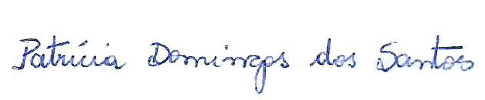 Patrícia Domingos dos Santos